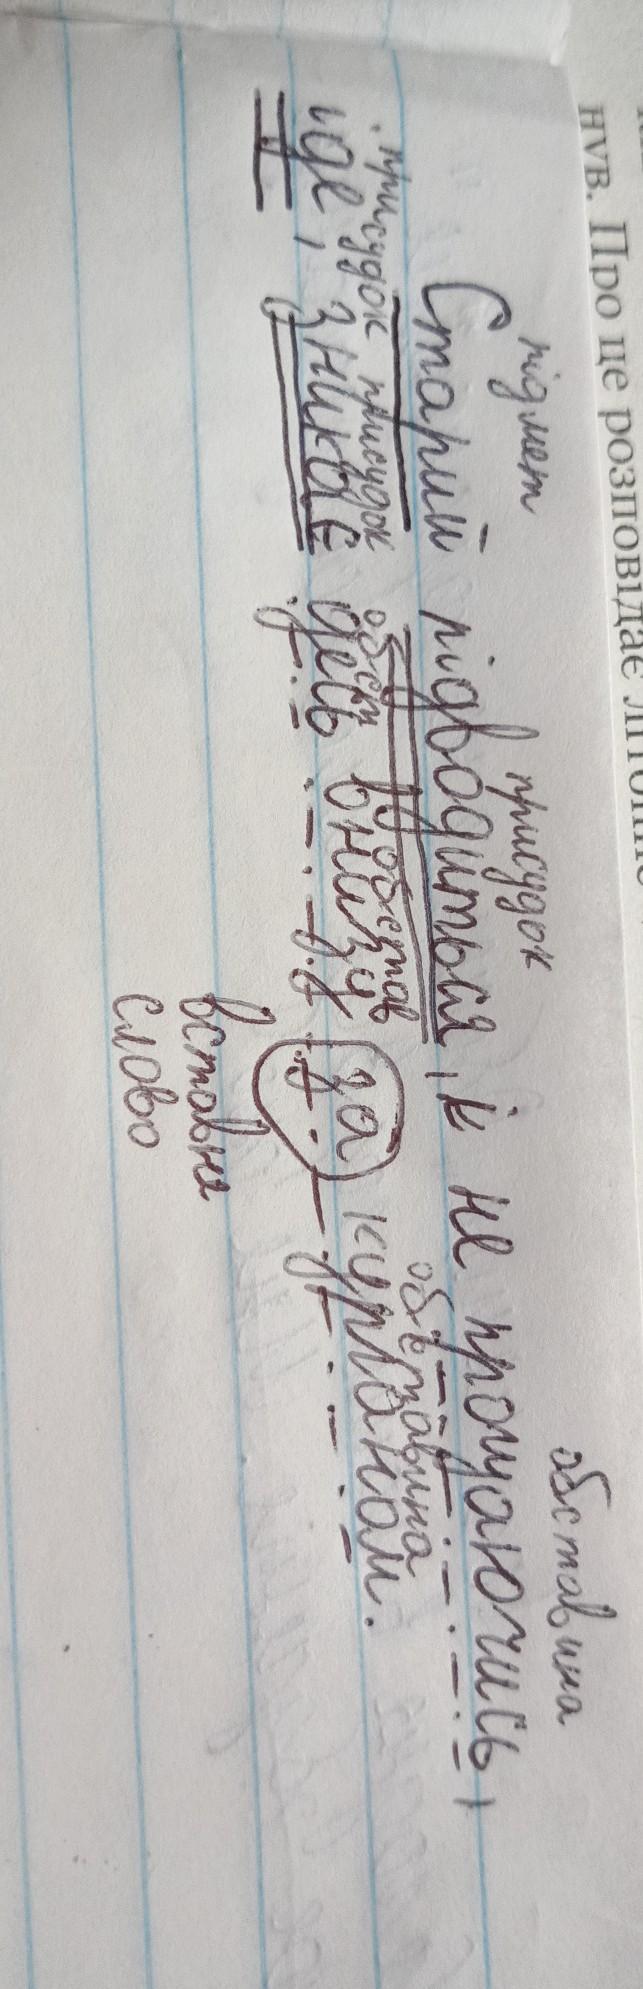 нув. Про це розповідає літопис
підмет присудок обставина
Старий підводиться, й не прощаючись,
присудок присудок обст обстав обставина
иде, зникає десь внизу за курганом.
вставне
слово